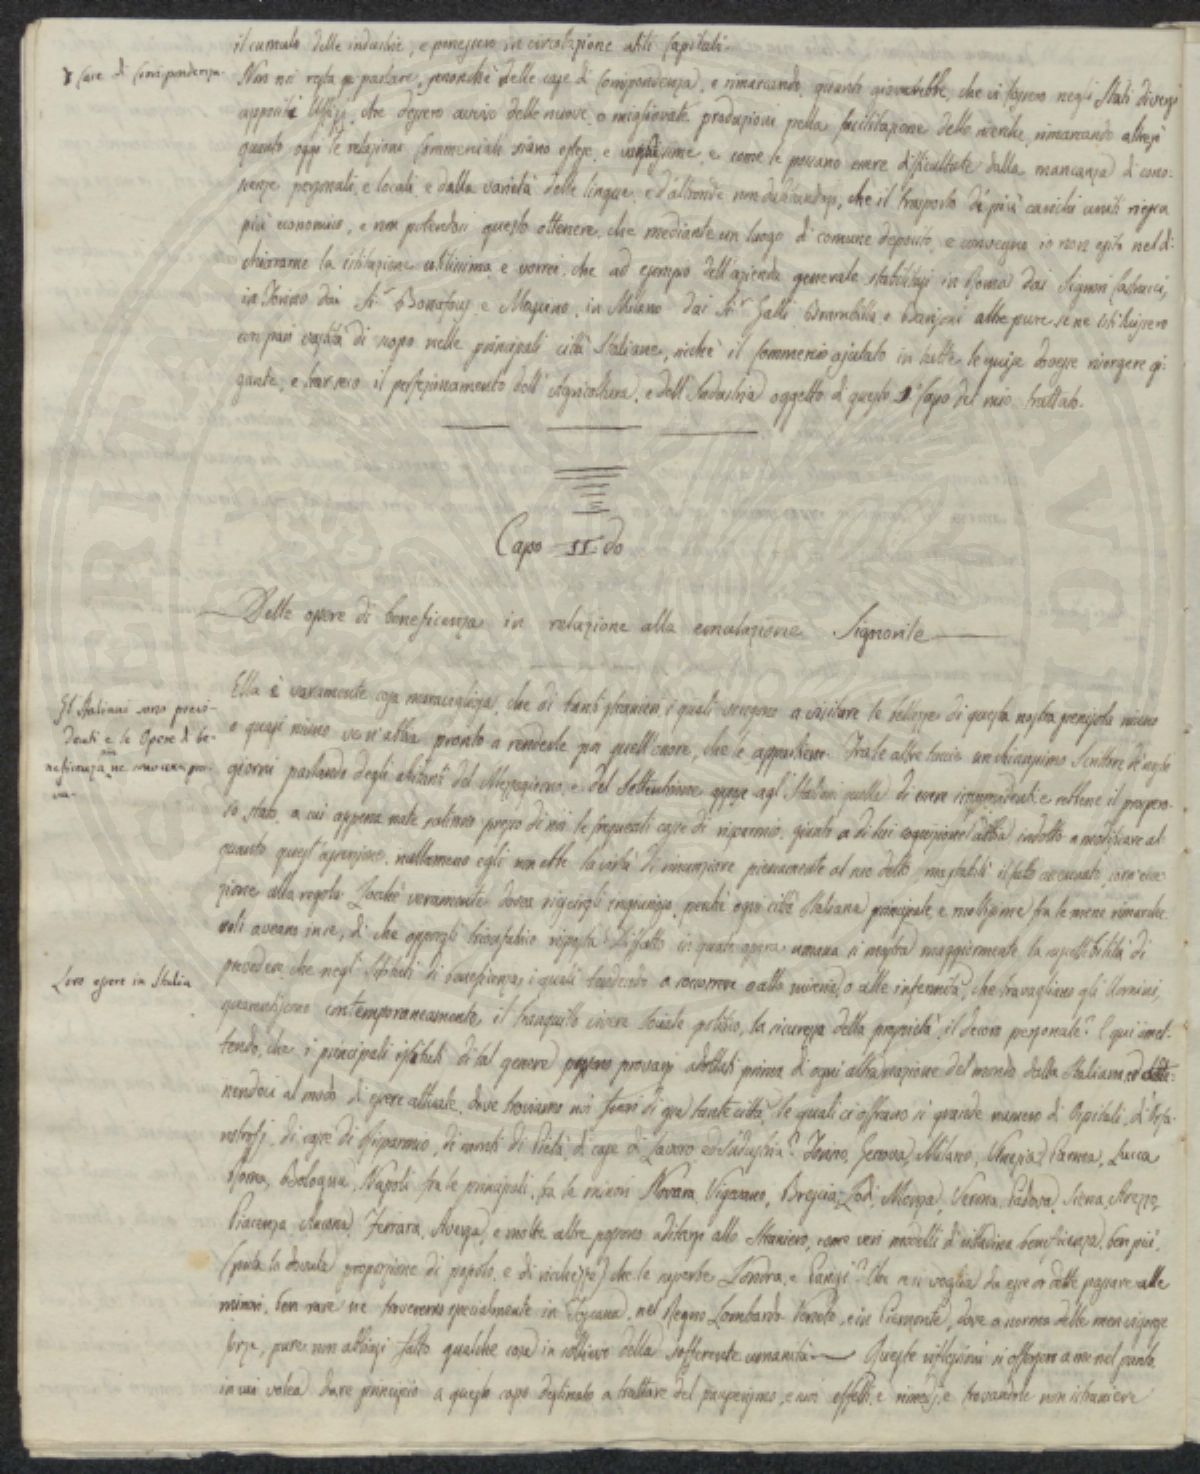 il cumulo delle industrie, e ponessero in circolazione utili Capitali.
Case di Corrispondenza.
Non mi resta a parlare, senonchè delle case di Corrispondenza, e rimarcando, quanto gioverebbe, che vi fossero negli Stati diversi
appositi Uffizj, che dessero avviso delle nuove, o migliorate produzioni pella facilitazione delle merche, rimarcando altresì
quanto oggi le relazioni Commerciali siano estese, e vastissime, e come le possano essere difficultate dalla mancanza di cono-
scenze personali, e locali, e dalla varietà delle lingue, e d'altronde non dubitandosi, che il trasporto di più carichi uniti riesca
più economico, e non potendosi questo ottenere, che mediante un luogo di comune deposito, e convegno io non esito nel di-
chiararne la istituzione utilissima e vorrei, che ad esempio dell'azienda generale stabilitasi in Roma dai Signori
in Torino dai Sri. Bonafous e in Milano dai Sri. Galli Brambilla e altre pure se ne istituissero
con pari vastità di scopo nelle principali città Italiane, sichè il Commercio ajutato in tutte le guise dovesse risorgere gi-
gante, e trar seco il perfezionamento dell'Agricoltura, e dell'Industria oggetto di questo Capo del mio trattato.
Capo II.do
Delle opere di beneficenza in relazione alla emulazione Signorile
Ella è veramente cosa maravigliosa, che di tanti stranieri, i quali vengono a visitare le bellezze di questa nostra penisola niuno
Gl'Italiani sono previ-
denti e le Opere di be-
neficenza ne sono una pro-
va.
o quasi niuno ve n'abbia pronto a renderle poi quell'onore, che le appartiene. Fra le altre taccie un chiarissimo Scrittore de' nostri
giorni parlando degli abitanti del Mezzogiorno, e del Settentrione appose agl'Italiani quella di essere imprevidenti e sebbene il prospero-
so stato, a cui appena nate salirono presso di noi le frequenti casse di risparmio, giunto a di lui cognizione l'abbia indotto a modificare al-
quanto quest'asserzione, nullameno egli non ebbe la virtù di rinunziare pienamente al suo detto, ma stabilì il fatto accennato, com'ecce-
zione alla regola. Locchè veramente dovea riescirgli ingiurioso, perchè ogni città Italiana principale, e moltissime fra le meno rimarche-
voli aveano in se, di che opporgli trionfatrice risposta. Diffatto in quale opera umana si mostra maggiormente la suscettibilità di
Loro opere in Italia
prevedere che negli Istituti di beneficenza, i quali tendendo a soccorrere o alla miseria, o alle infermità, che travagliano gli Uomini,
guarentiscono contemporaneamente, il tranquillo vivere sociale politico, la sicurezza della proprietà, il decoro personale? E qui omet-
tendo, che i principali istituti di tal genere ponno provarsi adottati prima di ogni altra nazione del mondo dalla Italiana, ed atte-
nendoci al modo di essere attuale, dove troviamo noi fuori di qua tante città, le quali ci offrano sì grande numero di Ospitali, di Orfa-
notrofj, di casse di Risparmio, di monti di Pietà, di case di Lavoro ed Industria? Torino, Genova, Milano, Venezia, Parma, Lucca
Roma, Bologna, Napoli fra le principali, fra le minori Novara, Vigevano, Brescia, Lodi, Monza, Verona, Padova, Siena, Arezzo,
Piacenza, Ancona, Ferrara, Aversa, e molte altre possono additarsi allo Straniero, come veri modelli di cittadina beneficenza, ben più,
(posta la dovuta proporzione di popolo, e di ricchezza) che le superbe Londra, e Parigi? Che se si voglia da esse or dette passare alle
minori, ben rare ne troveremo specialmente in Toscana, nel Regno Lombardo Veneto, e in Piemonte, dove a norma delle men vigorose
forze, pure non abbiasi fatto qualche cosa in sollievo della sofferente umanità — Queste riflessioni si offersero a me nel punto,
in cui volea dare principio a questo capo destinato a trattare del pauperismo, e suoi effetti, e rimedj, e trovarmele non istraniere